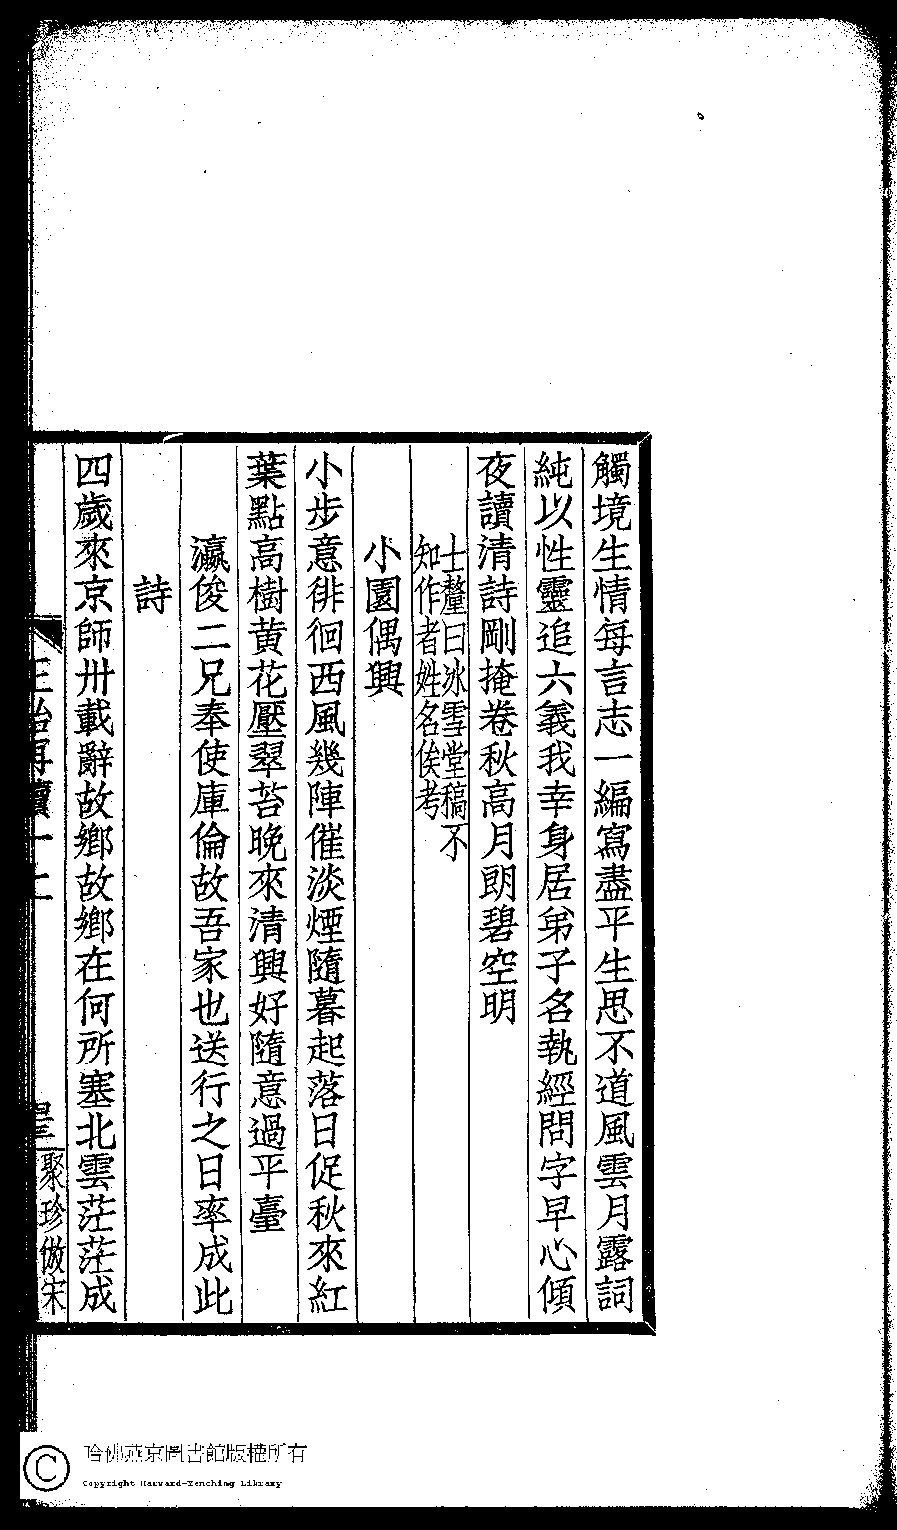 觸境生情每言志一編寫盡平生思不道風雲月露詞
純以性靈追六義我幸身居弟子名執經問字早心傾
夜讀清詩剛掩卷秋高月朗碧空明
士釐曰冰雪堂稿不
知作者姓名俟考
小園偶興
小步意徘徊西風幾陣催淡煙隨暮起落日促秋來紅
葉點高樹黃花壓翠苔晚來清興好隨意過平臺
瀛俊二兄奉使庫倫故吾家也送行之日率成此
詩
四歲來京師卅載辭故鄉故鄉在何所塞北雲茫茫成
三治再續一上
聚珍倣宋
哈佛燕京圖書館版權所有
Copyright Harvard-Yenching Library